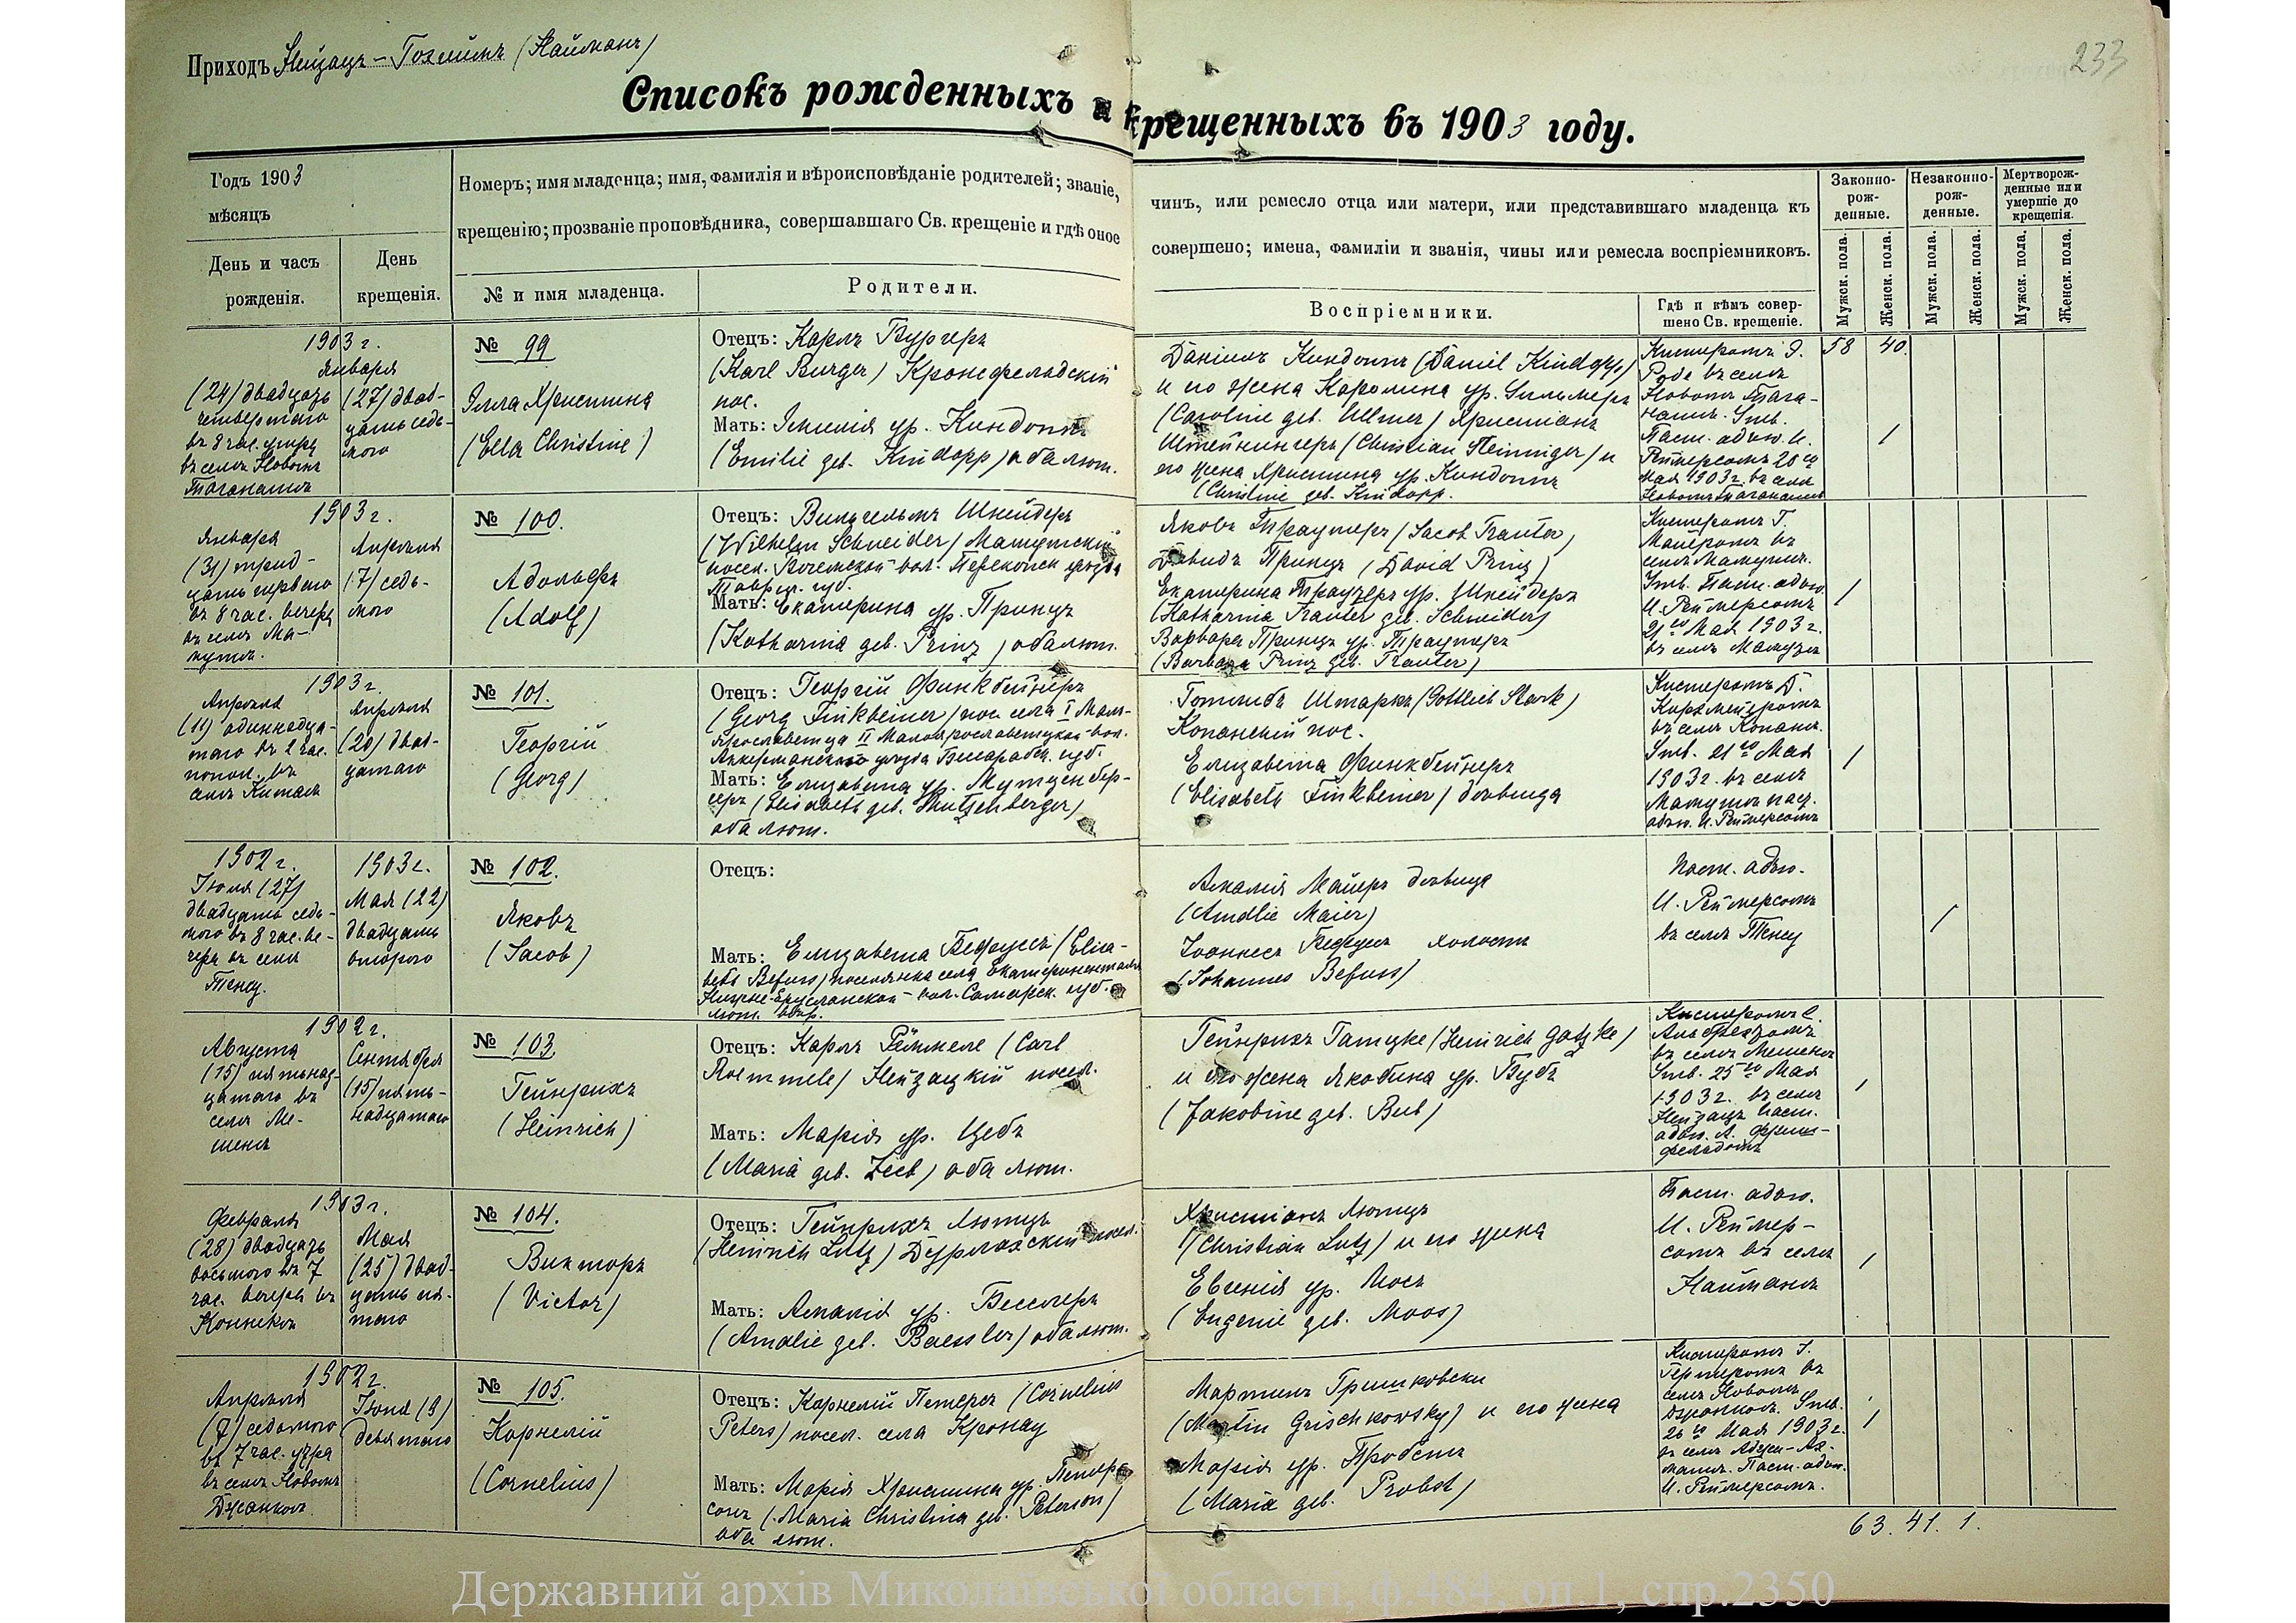 Приходъ Нейзацъ-Гохгеймъ (Найманъ)
233
Списокъ рожденныхъ и крещенныхъ въ 1903 году.
Годъ 1903
мѣсяцъ
День и часъ
рожденія.
День
крещенія.
Номеръ; имя младенца; имя, фамилія и вѣроисповѣданіе родителей; званіе,
чинъ, или ремесло отца или матери, или представившаго младенца къ
крещенію; прозваніе проповѣдника, совершавшаго Св. крещеніе и гдѣ оное
совершено; имена, фамиліи и званія, чины или ремесла воспріемниковъ.
№ и имя младенца.
Родители.
Воспріемники.
Гдѣ и кѣмъ совер-
шено Св. крещеніе.
Законно-
рож-
денные.
Незаконно-
рож-
денные.
Мертворож-
денные или
умершіе до
крещенія.
Мужск. пола.
Женск. пола.
Мужск. пола.
Женск. пола.
Мужск. пола.
Женск. пола.
1903 г.
Января
(24) двадцать
четвертаго
въ 8 час. утра
въ селѣ Новомъ
Таганашѣ
(27) двад-
цать седь-
мого
№ 99
Элла Христина
(Ella Christine)
Отецъ: Карлъ Бургеръ
(Karl Burger) Кронсфельдскій
пос.
Мать: Эмилія ур. Киндоппъ
(Emilie geb. Kindopp) оба лют.
Даніилъ Киндоппъ (Daniel Kindopp)
и его жена Каролина ур.
(Caroline geb. Ullmer) Христианъ
Штейнингеръ (Christian Steininger) и
его жена Христина ур. Киндоппъ
(Christine geb. Kindopp.
Кистеромъ Э.
Роде въ селѣ
Новомъ Тага-
нашѣ. Утв.
Паст. адъю. И.
Реймерсомъ 20го
Мая 1903 г. въ селѣ
Новомъ Таганашѣ
58 40.
1903 г.
Января
(31) трид-
цать перваго
въ 8 час. вечера
въ селѣ Ма-
мутѣ.
Апрѣля
(7) седь-
мого
№ 100.
Адольфъ
(Adolf)
Отецъ: Вильгельмъ Шнейдеръ
(Wilhelm Schneider) Мамутскій
посел. вол. Перекопск уѣзда
Таврич. губ.
Мать: Екатерина ур. Принцъ
(Katharina geb. Prinz) оба лют.
Яковъ Траутеръ (Jacob Trauter)
Давидъ Принцъ (David Prinz)
Екатерина Траутеръ ур. Шнейдеръ
(Katharina Trauter geb. Schneider)
Варвара Принцъ ур. Траутеръ
(Barbara Prinz geb. Trauter)
Кистеромъ Г.
Майеромъ въ
селѣ Мамутѣ.
Утв. Паст. адъю.
И. Реймерсомъ
21го Мая 1903 г.
въ селѣ Мамутѣ
1903 г.
Апрѣля
(11) одиннадца-
таго въ 2 час.
попол. въ
селѣ Китаѣ
Апрѣля
(20) двад-
цатаго
№ 101.
Георгій
(Georg)
Отецъ: Георгій Финкбейнеръ
(Georg Finkbeiner) пос. села I Мало-
ярославетца II Малоярославетцкой вол.
Аккерманскаго уѣзда Бессарабск. губ.
Мать: Елизавета ур. Мутшенбер-
геръ (Elisabeth geb. Mutschenberger)
оба лют.
Готлибъ Штаркъ (Gottlieb Stark)
Копанскій пос.
Елизавета Финкбейнеръ
(Elisabeth Finkbeiner) дѣвица
Кистеромъ Д.
въ селѣ Копани.
Утв. 21го Мая
1903 г. въ селѣ
Мамутѣ паст.
адъю. И. Реймерсомъ
1902 г.
Іюля (27)
двадцать седь-
мого въ 8 час. ве-
чера въ селѣ
Тенсу.
1903 г.
Мая (22)
двадцать
второго
№ 102.
Яковъ
(Jacob)
Отецъ:
Мать: Елизавета Бефусъ (Elisa-
beth Befuss) поселянка села Екатериненталя
Нижне-Ерусланской вол. Самарск. губ.
лют. вѣр.
Амалія Майеръ дѣвица
(Amalie Maier)
Іоаннесъ Бефусъ холостъ
(Johannes Befuss)
Паст. адъю.
И. Реймерсомъ
въ селѣ Тенсу
1902 г.
Августа
(15) пятьнад-
цатаго въ
селѣ Ме-
шенѣ
Сентября
(15) пять-
надцатаго
№ 103.
Гейнрихъ
(Heinrich)
Отецъ: Карлъ Рэммеле (Carl
Roemmele) Нейзацкій посел.
Мать: Марія ур. Цебъ
(Maria geb. Zeeb) оба лют.
Гейнрихъ Гатцке (Heinrich Gatzke)
и его жена Якобина ур. Бубъ
(Jakobine geb. Bub)
Кистеромъ С.
въ селѣ Мешенѣ
Утв. 25го Мая
1903 г. въ селѣ
Нейзацъ Паст.
адъю. А.
фельдомъ
1903 г.
Февраля
(28) двадцать
восьмого въ 7
час. вечера въ
Мая
(25) двад-
цать пя-
таго
№ 104.
Викторъ
(Victor)
Отецъ: Гейнрихъ Лютцъ
(Heinrich Lutz) Дурлахскій посел.
Мать: Амалія ур. Бесслеръ
(Amalie geb. Baessler) оба лют.
Христіанъ Лютцъ
(Christian Lutz) и его жена
Евгенія ур. Мосъ
(Eugenie geb. Moos)
Паст. адъю.
И. Реймер-
сомъ въ селѣ
Найманѣ
1902 г.
Апрѣля
(7) седьмого
въ 7 час. утра
въ селѣ Новомъ
Джанкоѣ
Іюня (9)
девятаго
№ 105.
Корнелій
(Cornelius)
Отецъ: Корнелій Петерсъ (Cornelius
Peters) посел. села Кронау
Мать: Марія Христина ур. Петер-
сонъ (Maria Christina geb. Peterson)
оба лют.
Мартинъ Гришковски
(Martin Grischkowsky) и его жена
Марія ур. Пробстъ
(Maria geb. Probst)
Кистеромъ
въ
селѣ Новомъ
Джанкоѣ. Утв.
26го Мая 1903 г.
въ селѣ
Паст. адъю.
И. Реймерсомъ.
63. 41. 1.
Державний архів Миколаївської області, ф.484, оп.1, спр.2350